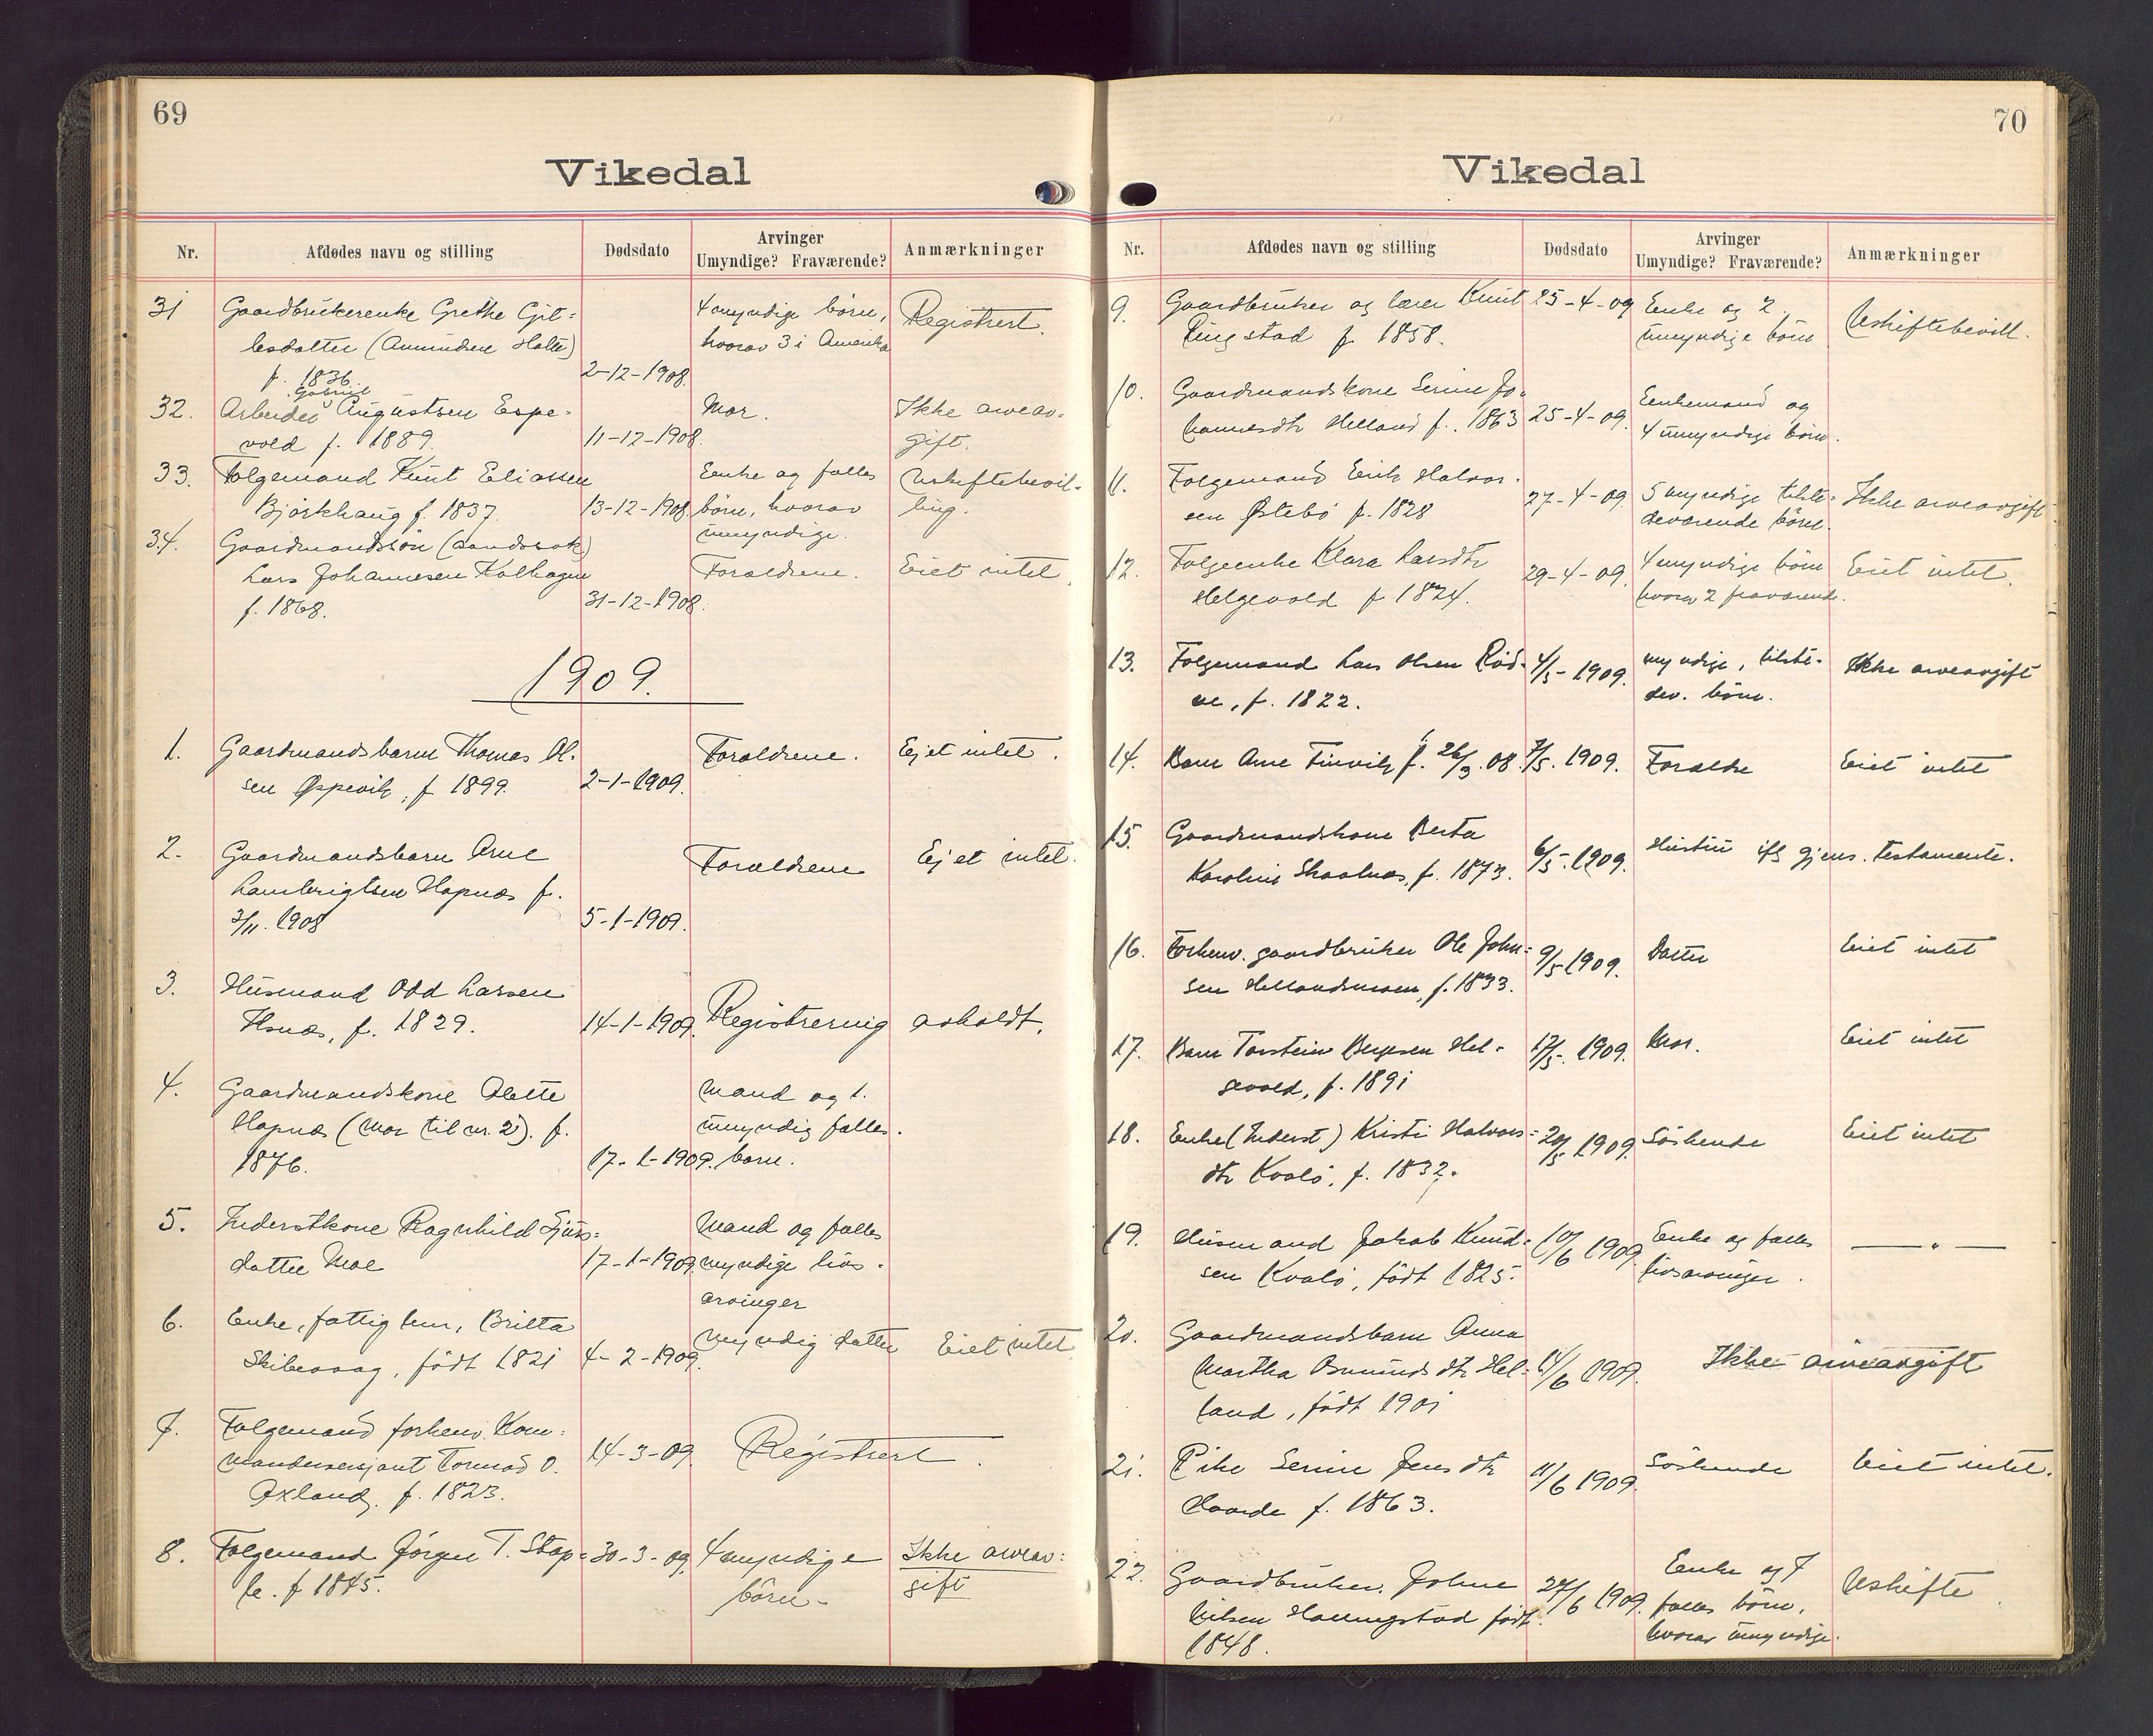 69
Vikedal
Nr. Afdødes navn og stilling Dødsdato Arvinger Umyndige? Fraværende? Anmærkninger
31 Gaardbrukerenke Grethe Git= 4 myndige børn, Registrert.
lesdatter (Amundsen Hatte) hvorav 3 i Amerika
f. 1836. 2-12-1908.
Gabriel
32. Arbeider Augustsen Espe= Mor. Ikke arveav=
vold f. 1889. 11-12-1908. gift.
33. Folgemand Knut Eliassen Enke og fælles Uskiftebevil=
Bjørkhaug f. 1837. 13-12-1908. børn, hvorav ling.
umyndige.
34. Gaardmandssøn (sandssvak)
Lars Johannesen Kolhagen Forældrene. Eiet intet.
f. 1868. 31-12-1908.
1909.
1. Gaardmandsbarn Thomas Ol- Forældrene. Ejet intet.
sen Øppevik, f. 1899. 2-1-1909.
2. Gaardmandsbarn Arne Forældrene Ejet intet.
Lambrigtsen Hapnæs f.
3/11. 1908 5-1-1909.
3. Husmand Odd Larsen
Hsnæs, f. 1829. 14-1-1909. Registrering avholdt.
4. Gaardmandskone Olette Mand og 1.
Hapnæs (Mor til nr. 2). f. umyndig fælles.
1876. 17-1-1909. barn.
5. Inderstkone Ragnhild Sjurs= Mand og fælles
datter Moe 17-1-1909. myndige livs-
arvinger
6. Enke, fattiglem, Britta myndig datter Eiet intet.
Skibevaag, født 1821 4-2-1909.
7. Folgemand forhenv. Kom=
mandersersjant Tormod O. 14-3-09. Registrert.
Oxland, f. 1823.
8. Folgemand Jørgen T. Stop= 30-3-09. 4 myndige Ikke arveav=
le. f 1845. børn- gift
70
Vikedal
Nr. Afdødes navn og stilling Dødsdato Arvinger Umyndige? Fraværende? Anmærkninger
9. Gaardbruker og lærer Knut 25-4-09 Enke og 2 Uskiftebevill.
Ringstad f. 1858. umyndige børn
10. Gaardmandskone Serine Jo- Enkemand og
hannesdtr Helland f. 1863 25-4-09. 4 umyndige børn.
11. Folgemand Erik Halvor- 5 myndige tilste= Ikke arveavgift
sen Østebø f. 1828 27-4-09. deværende børn.
12. Folgeenke Klara Larsdtr 29-4-09. 4 myndige børn Eiet intet.
Helgevold f 1824. hvorav 2 fraværende.
13. Folgemand Lars Olsen Rød- 4/5-1909. myndige, tilste- Ikke arveavgift
ne, f. 1822. dev. børn.
14. Barn Arne Finvik f. 26/3.08. 7/5. 1909. Forældre Eiet intet
15. Gaardmandskone Berta
Karoline Skaalnæs, f. 1873. 6/5-1909. Hustru ifl gjens. testamente.
16. Forhenv. gaardbruker Ole John= 9/5-1909. Datter Eiet intet
sen Hellandsmoen, f. 1833.
17. Barn Torstein Bergesen Hel- 12/5-1909. Mor. Eiet intet
gevold, f. 1891
18. Enke (Inderst) Kristi Halvors= 20/5 1909. Søskende Eiet intet
dtr Kvalø, f. 1832.
19. Husmand Jakob Knud- 10/6 1909. Enke og fælles — " —
sen Kvalø, født 1825. livsarvinger.
20. Gaardmandsbarn Anna
Martha Osmundsdtr Hel- 11/6 1909. Ikke arveavgift
land, født 1901
21. Pike Serine Jensdtr 11/6 1909. Søskende Eiet intet.
Haarde f. 1863.
22. Gaardbruker Johne 27/6 1909. Enke og 7 Uskifte
Nilsen Hallingstad født fælles børn,
1848. hvorav umyndige.